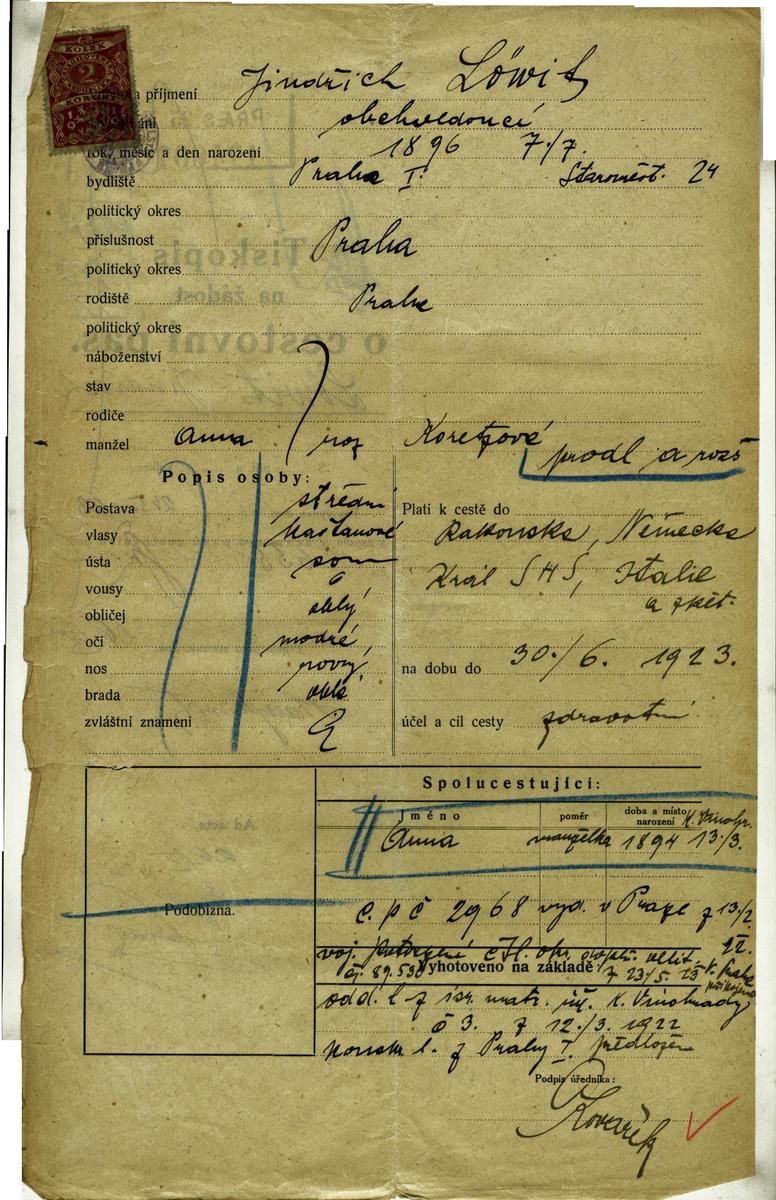 KOLEK
2
příjmení Jindřich Löwit
obchvedoucí
rok, měsíc a den narození 1896 7./7.
bydliště Praha I. Staroměst. 24
politický okres
příslušnost Praha
politický okres
rodiště Praha
politický okres
náboženství
stav
rodiče
manžel Anna roz Koretzové
prodl a rozš
Popis osoby:
Postava střední
vlasy kaštanové
ústa soum
vousy 0
obličej oblý
oči modré
nos rovný
brada oblá
zvláštní znamení
Platí k cestě do
Rakouska, Německa
Král SHS, Italie
a zpět.
na dobu do 30./6. 1923.
účel a cíl cesty zdravotní
Spolucestující:
Jméno poměr doba a místo narození K. Vinohr.
Anna manželka 1894 13./3.
Podobizna.
c. p č 2968 vyd. v Praze z 13./2.
22.
voj. potvrzení
čj. 89.530 z 23/5. v. Praha
Vyhotoveno na základě
odd. l z isr. matr. K. Vinohrady
č 3. z 12./3. 1922
l. z Prahy I. předložen
Podpis úředníka:
Kovařík